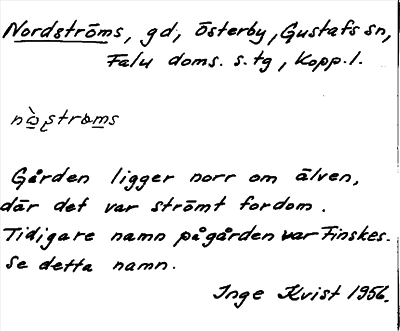 Nordströms, gd, Österby, Gustafs sn,
Falu doms. s. tg, Kopp. l.
Gården ligger norr om älven,
där det var strömt fordom.
Tidigare namn på gården var Finskes.
Se detta namn.
Inge Kvist 1956.